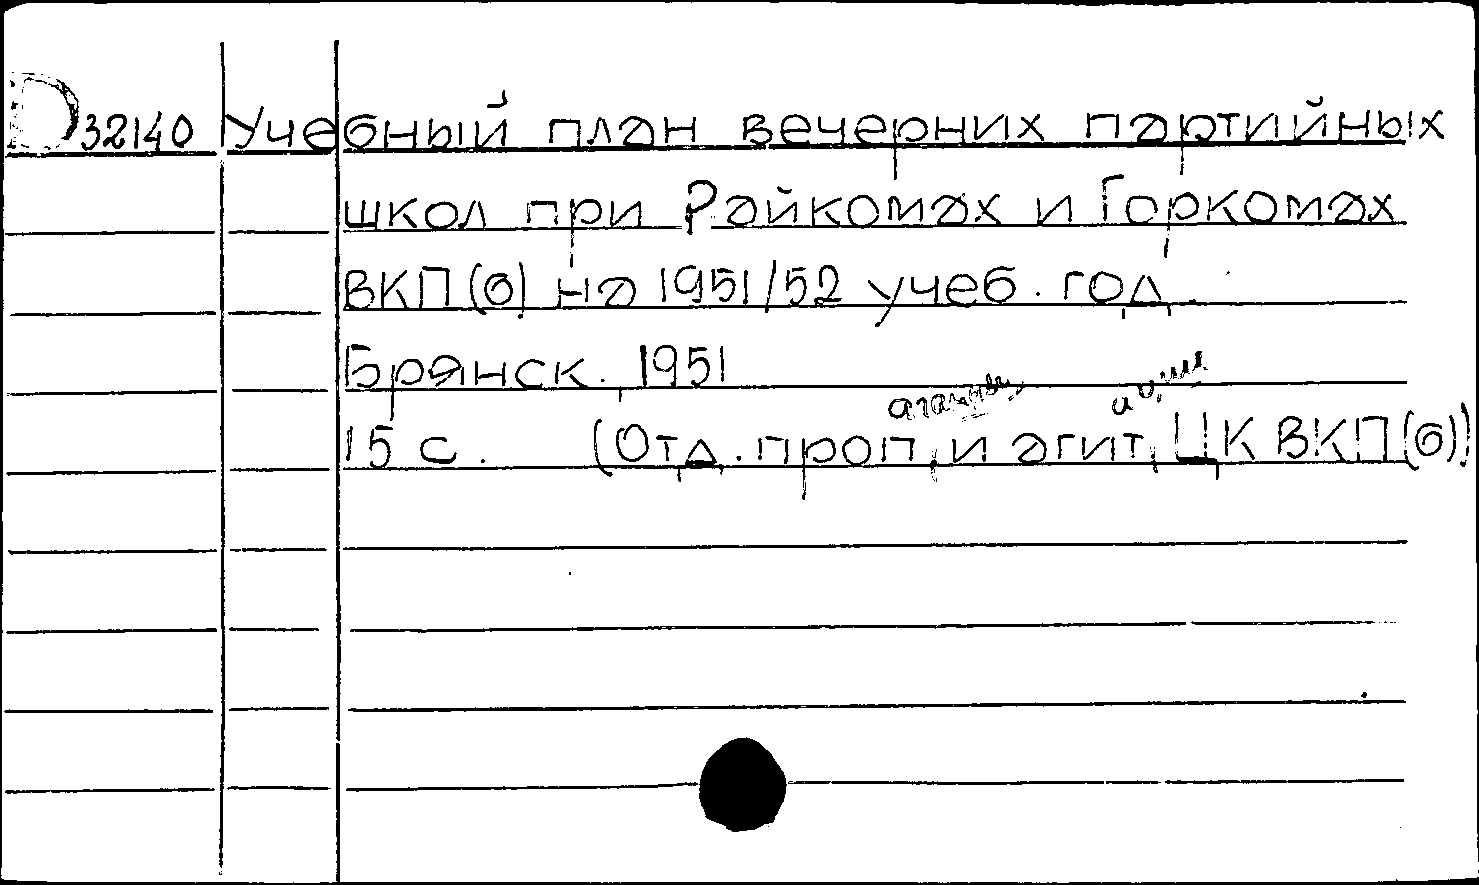 D 32140 Учебный план вечерних партийных
школ при Райкомах и Горкомах
ВКП(б) на 1951/52 учеб. год.
Брянск, 1951
15 с. (Отд. проп. и агит. ЦК ВКП(б))